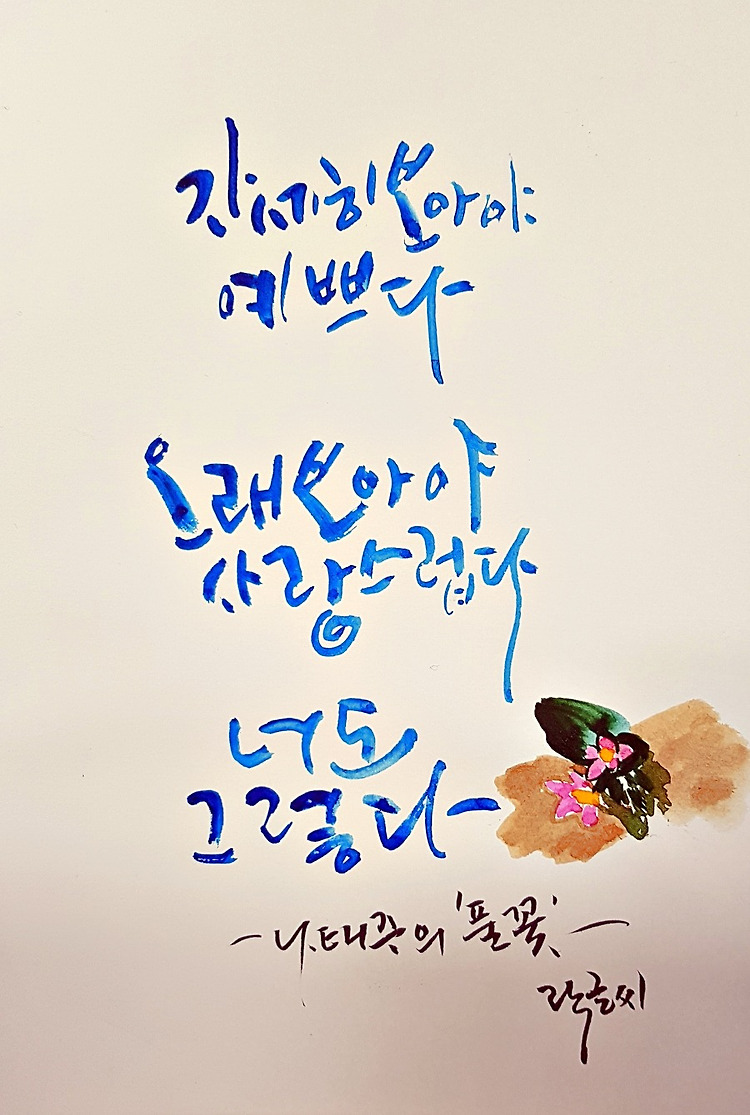 자세히 보아야
예쁘다
오래 보아야
사랑스럽다
너도
그렇다
-나태주의 '풀꽃'-
락글씨